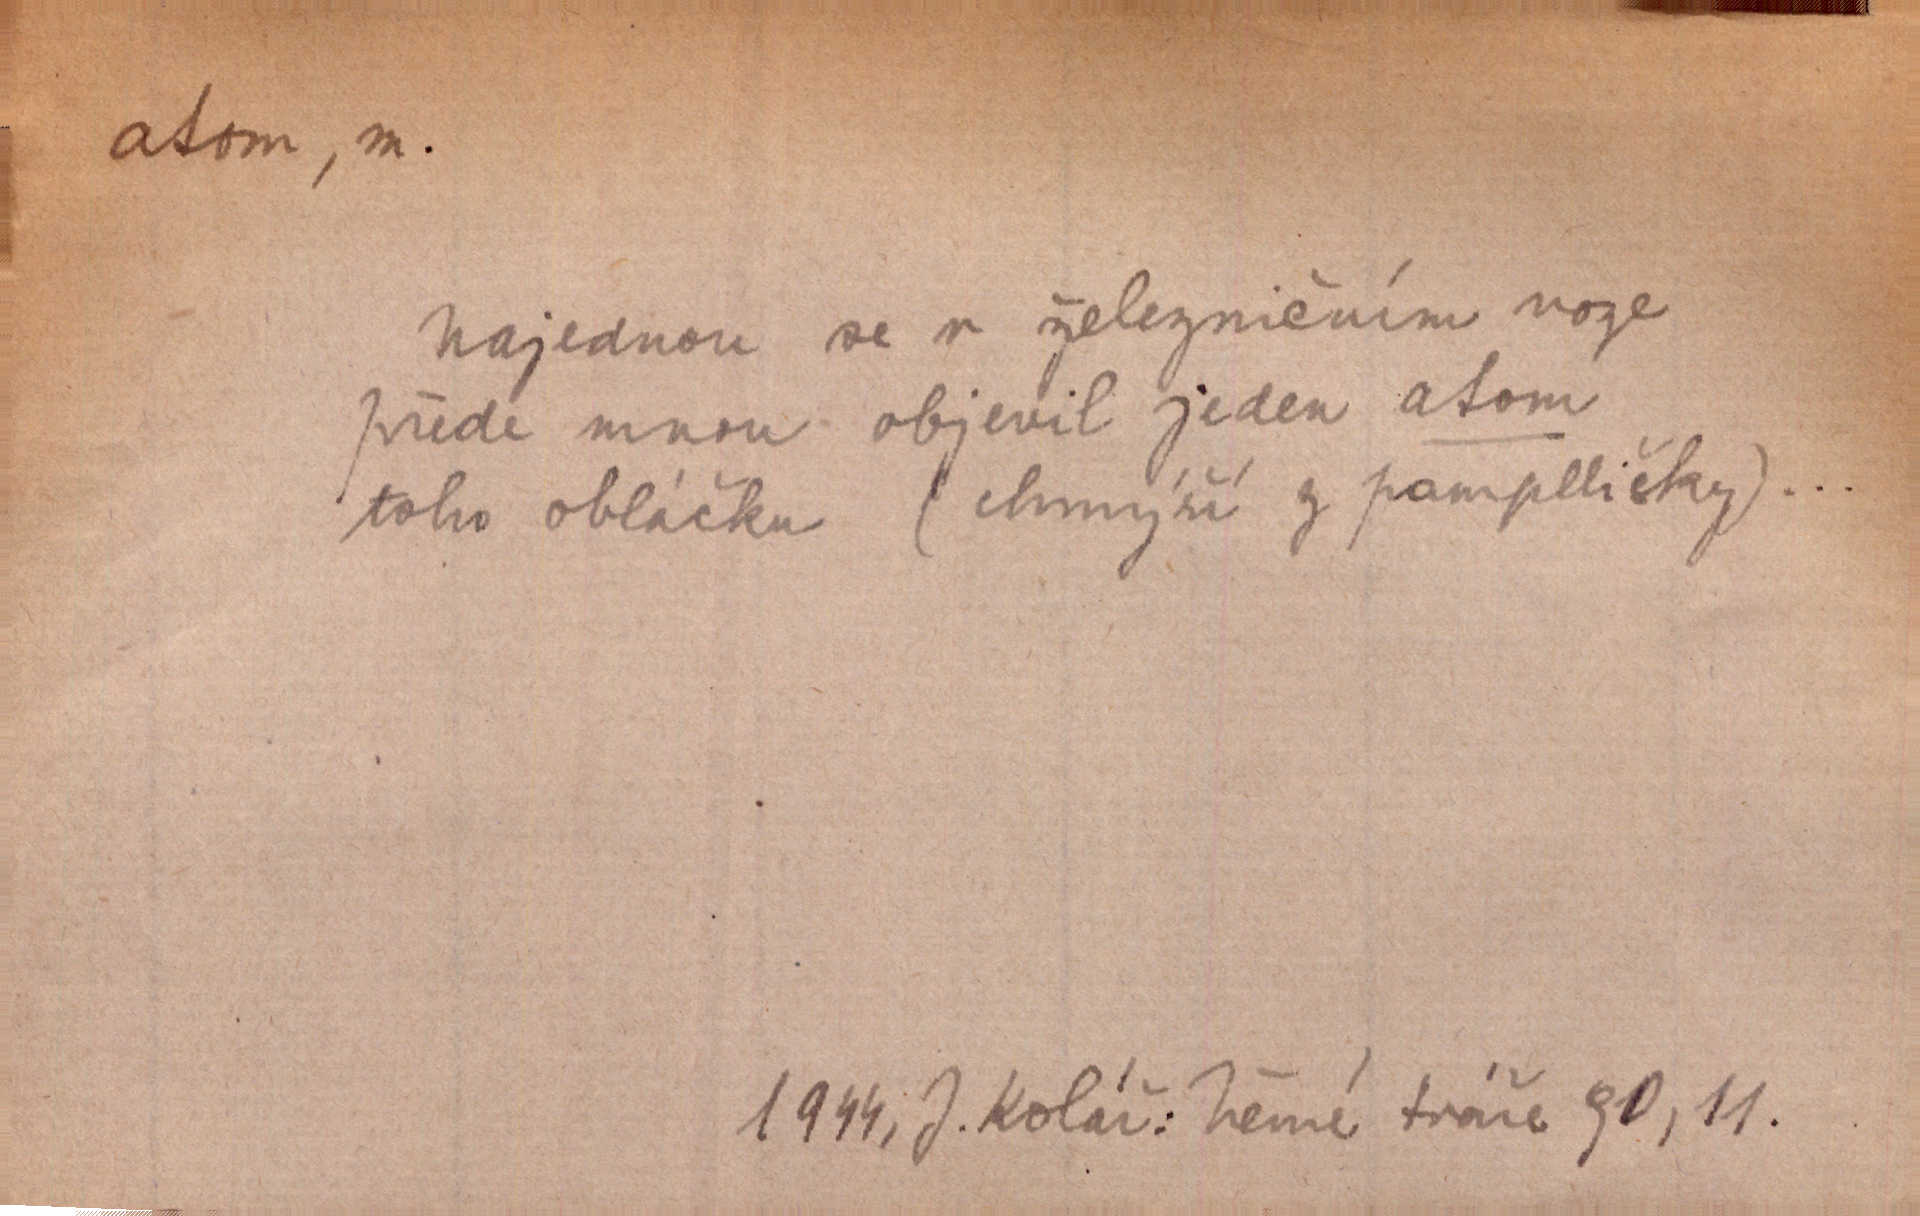 atom, m.
Najednou se v železničním voze
přede mnou objevil jeden atom
toho obláčku (chmýří z pampeličky)...
1944, J. Kolář: Němé tváře 90, 11.